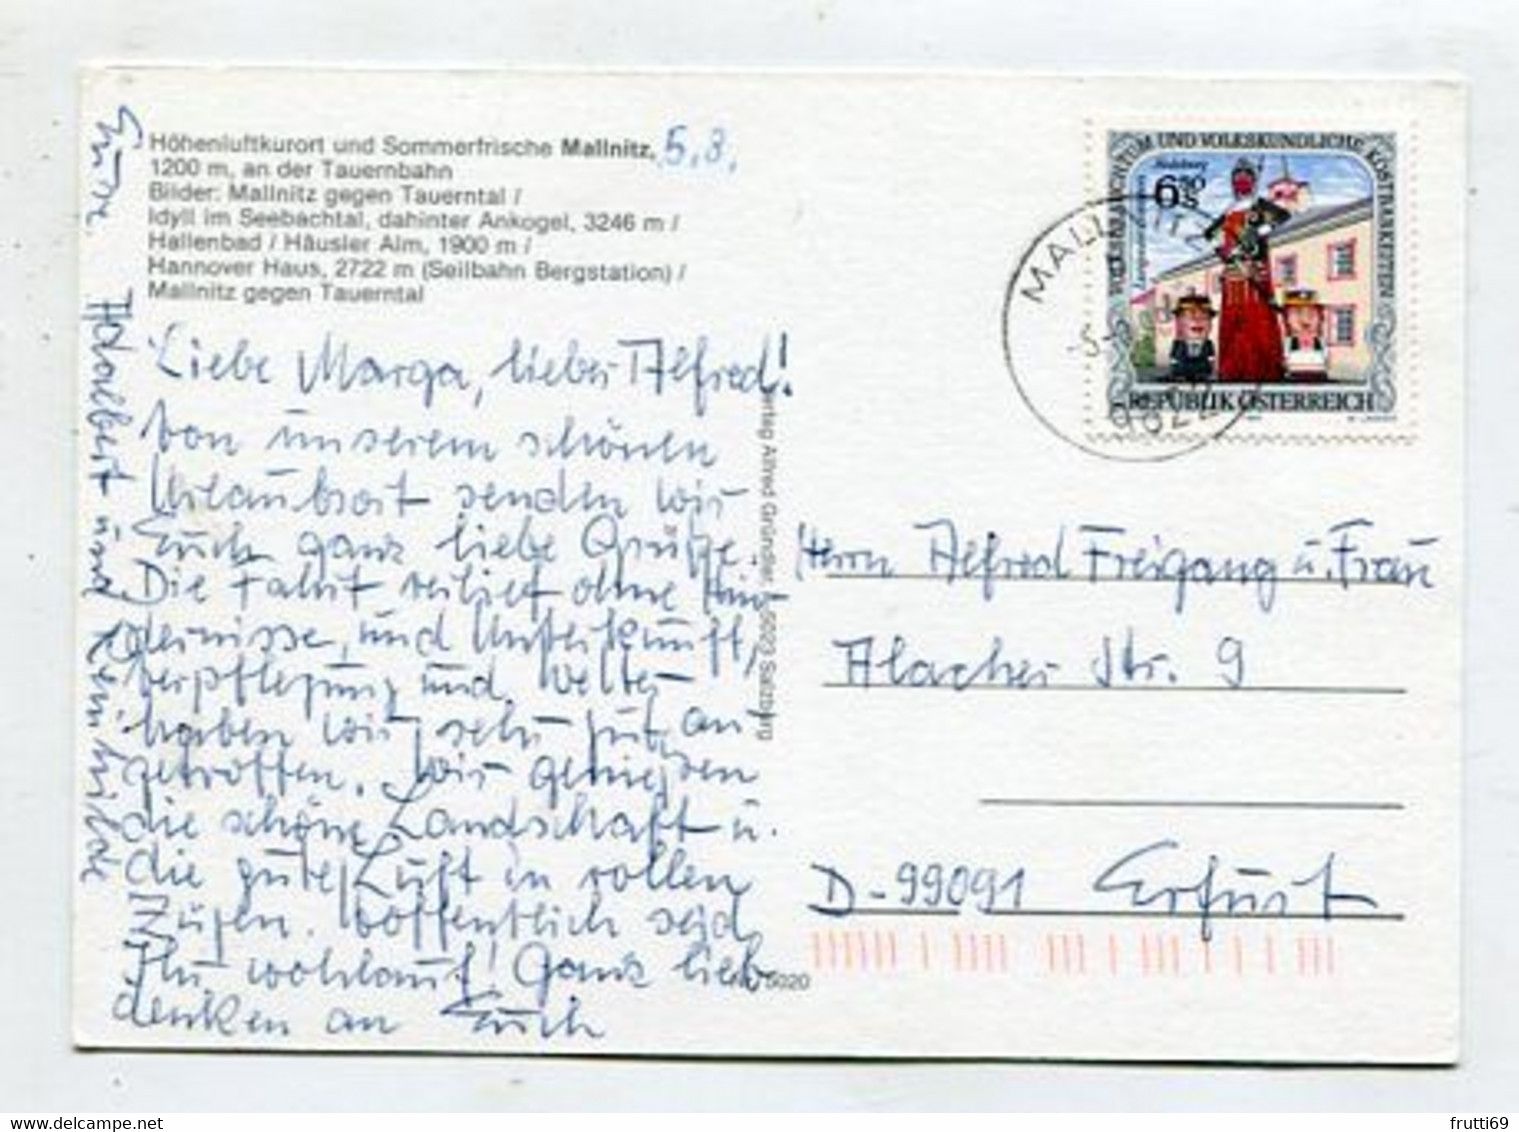 Höhenluftkurort und Sommerfrische Mallnitz,
1200 m, an der Tauernbahn
Bilder: Mallnitz gegen Tauerntal /
Idyll im Seebachtal, dahinter Ankogel, 3246 m /
Hallenbad / Häusler Alm, 1900 m /
Hannover Haus, 2722 m (Seilbahn Bergstation) /
Mallnitz gegen Tauerntal
5.8.
Liebe Marga, lieber Alfred!
Von unserem schönen
Urlaubsort senden wir
Euch ganz liebe Grüße.
Die Fahrt verlief ohne Hin-
dernisse, und Unterkunft,
Verpflegung und Wetter
haben wir sehr gut an-
getroffen. Wir genießen
die schöne Landschaft u.
die gute Luft in vollen
Zügen. Hoffentlich seid
Ihr wohlauf! Ganz lieb
denken an Euch
Eure Adalbert und Reinhilde
Verlag Alfred Gründler, 5023 Salzburg
5020
VOLKSBRAUCHTUM UND VOLKSKUNDLICHE KOSTBARKEITEN
Salzburg
6 50 S
REPUBLIK ÖSTERREICH
MALLNITZ
9822
Herrn Alfred Freigang u. Frau
Alacher Str. 9
D-99091 Erfurt
frutti69